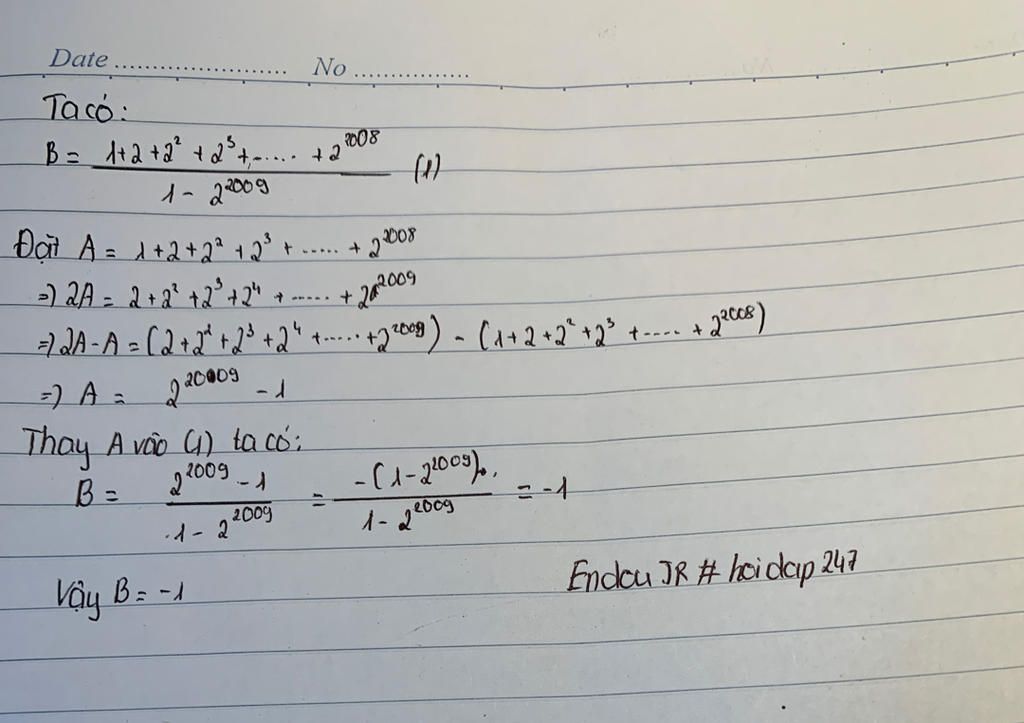 Date ...................... No ...............
Ta có:
B = (1+2+2²+2³+.....+2^2008)/(1-2^2009) (1)
Đặt A = 1+2+2²+2³+.....+2^2008
=> 2A = 2+2²+2³+2⁴+.....+2^2009
=> 2A-A = (2+2²+2³+2⁴+.....+2^2009) - (1+2+2²+2³+.....+2^2008)
=> A = 2^20009 - 1
Thay A vào (1) ta có:
B = (2^2009 - 1)/(1-2^2009) = -(1-2^2009)/(1-2^2009) = -1
Vậy B = -1
Endou JR # hoidap 247